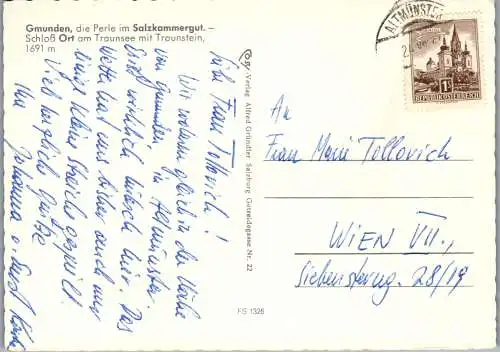 Gmunden, die Perle im Salzkammergut. –
Schloß Ort am Traunsee mit Traunstein,
1691 m
Liebe Frau Tollovich!
Wir wohnen gleich in der Nähe
von Gmunden in Altmünster.
Es ist wirklich hübsch hier. Das
Wetter hat uns bisher auch nur
kleine Streiche gespielt.
Viele herzliche Grüße
Ihre
Johanna u.
Verlag Alfred Gründler Salzburg Gutzeidegasse Nr. 22
FS 1326
ALTMÜNSTER
1S
REPUBLIK ÖSTERREICH
An
Frau Marie Tollovich
WIEN VII.,
Siebensterng. 28/19